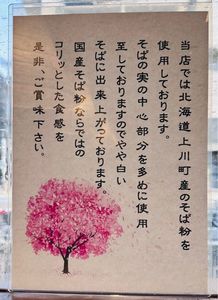 当店では北海道上川町産のそば粉を
使用しております。
そばの実の中心部分を多めに使用
至しておりますのでやや白い
そばに出来上がっております。
国産そば粉ならではの
コリッとした食感を
是非、ご賞味下さい。